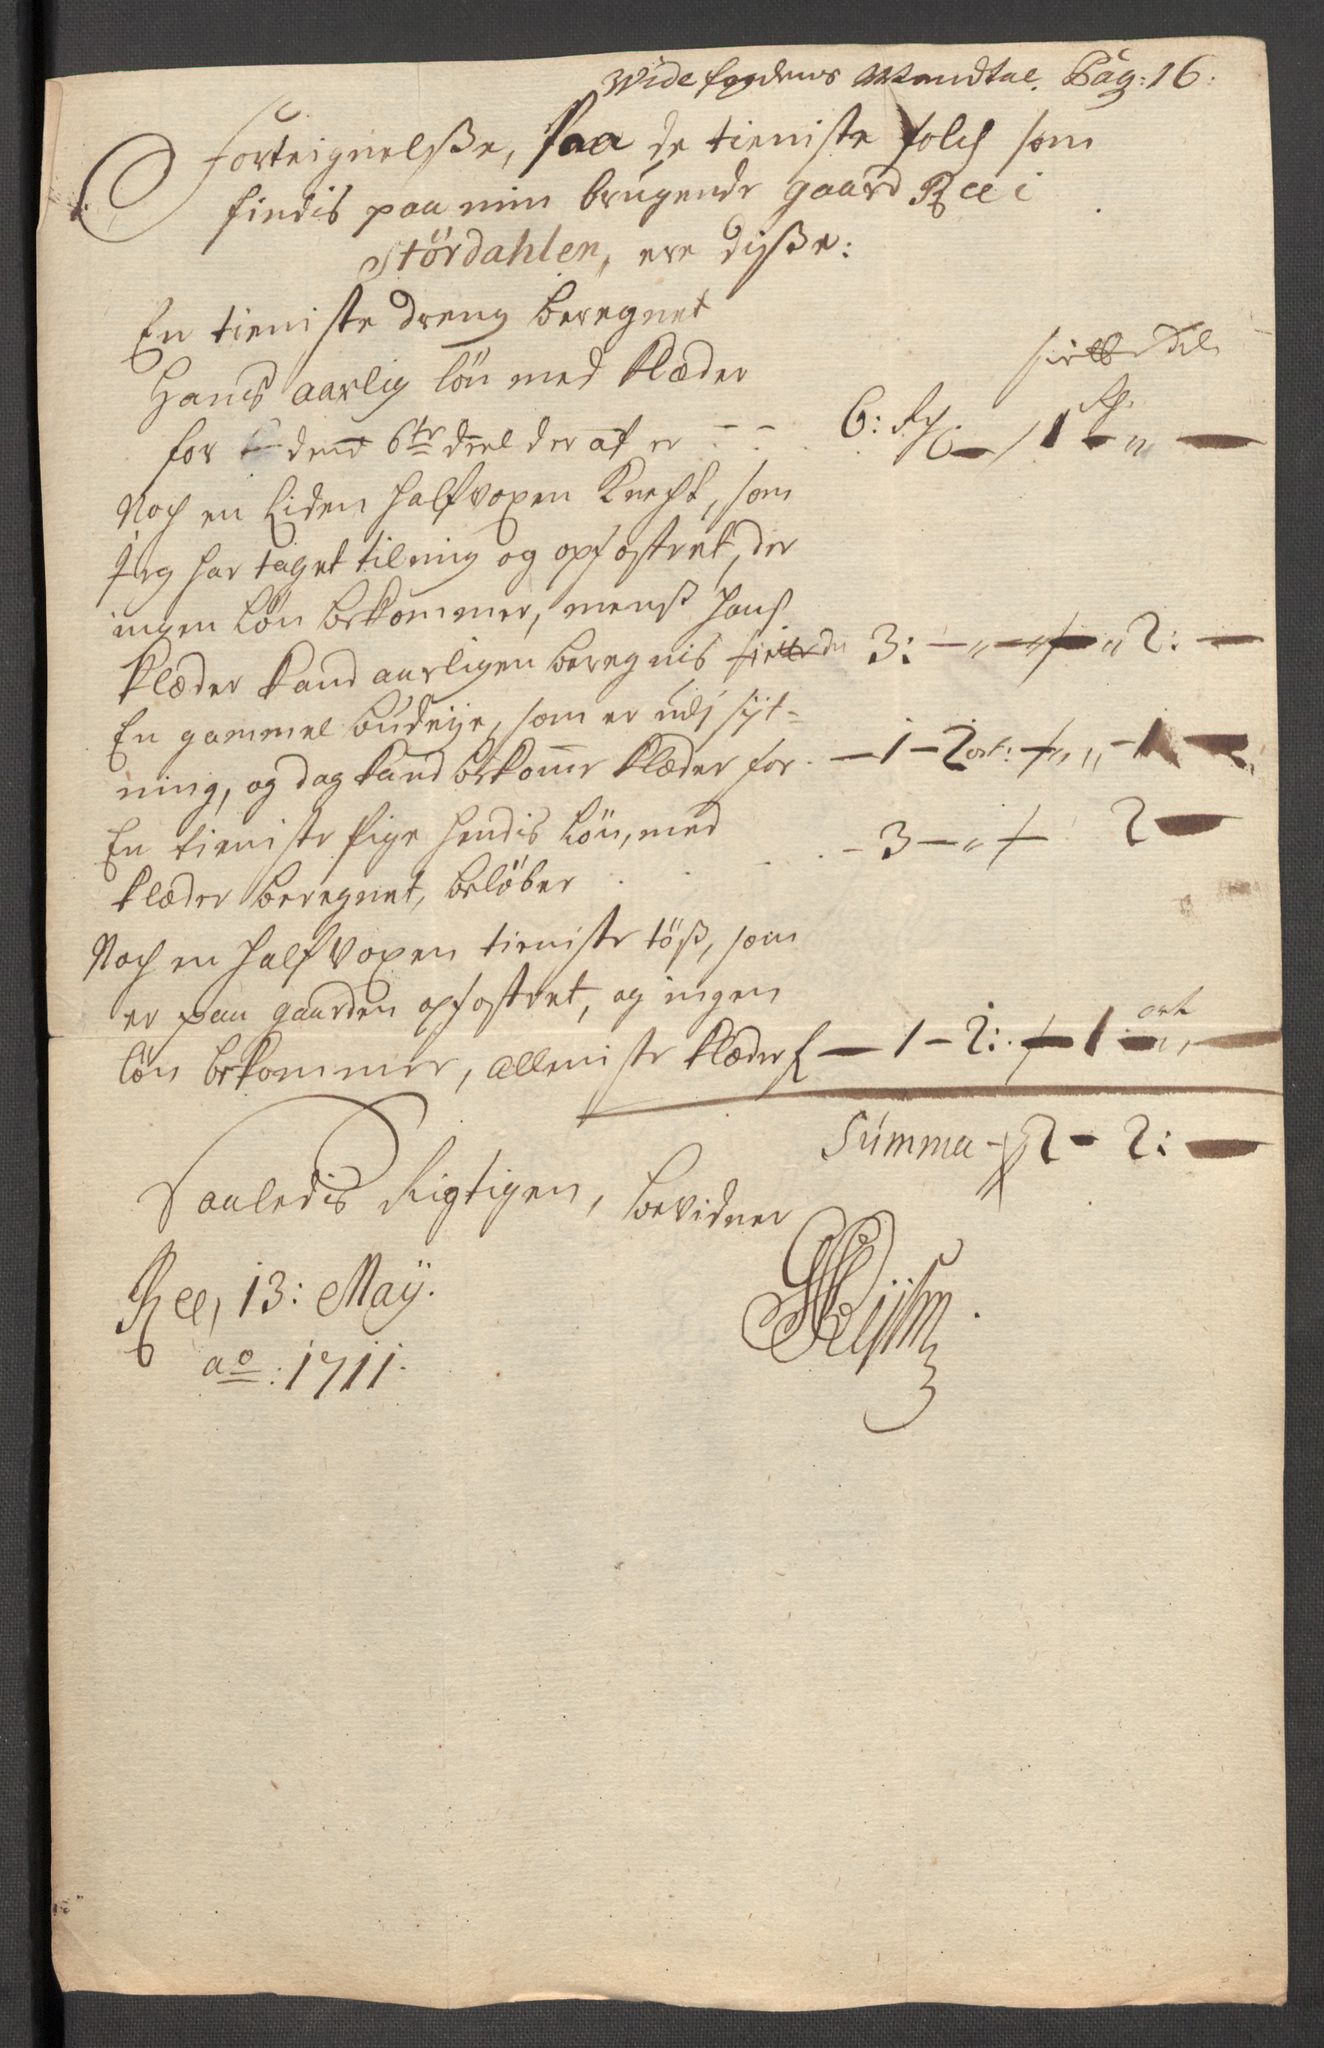 Vide fogdens Mandtal. Pag: 16.
Forteignelsße, Paa de tieniste folch som
findis paa min brugende gaard Ree i
Stördahlen, ere disße:
En tieniste dreng beregnet
Hans aarlig lön med Klæder
for den 6te deel der af er - - 6: Rd 1 - „ -
Noch en liden halfvoxen Knecht, som
Jeg har taget til mig og opfostret, der
ingen lön bekommer, menß hans
Klæder kand aarligen beregnis 3: - „ - „ 2: -
En gammel budeije, som er udj sÿt-
ning, og dog kand bekomme klæder for. - 1 - 2 ort: „ „ - 1
En tieniste Pige hendis lön, med
klæder beregnet, belöber . . - 3 - „ 2 -
Noch en halfvoxen tieniste töß, som
er paa gaarden opfostret, og ingen
lön bekommer, alleniste klæder - 1 - 2: - 1 ort „ -
Summa - 2 - 2: -
Saaledis Rigtigen, bevidner
Ree, 13: Maÿ.
ao: 1711.